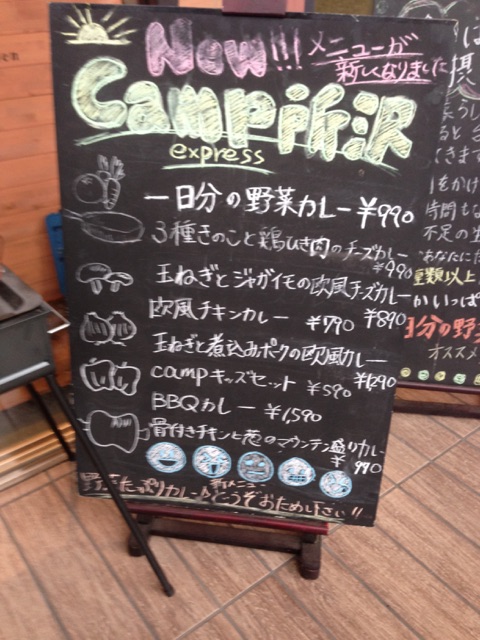 New!!! メニューが
新しくなりました
Campfire
express
一日分の野菜カレー ¥990
3種きのこと鶏ひき肉のチーズカレー
¥990
玉ねぎとジャガイモの欧風チーズカレー
¥890
欧風チキンカレー ¥790
玉ねぎと煮込みポークの欧風カレー
¥1,290
campキッズセット ¥590
BBQカレー ¥1,590
骨付きチキンと葱のマウンテン盛りカレー
¥990
新メニュー
野菜たっぷりカレー♪どうぞおためし下さい!!
摂
きます
をかけ
時間も
不足の
あなたに
種類以上
かいっぱ
日分の野
オススメ